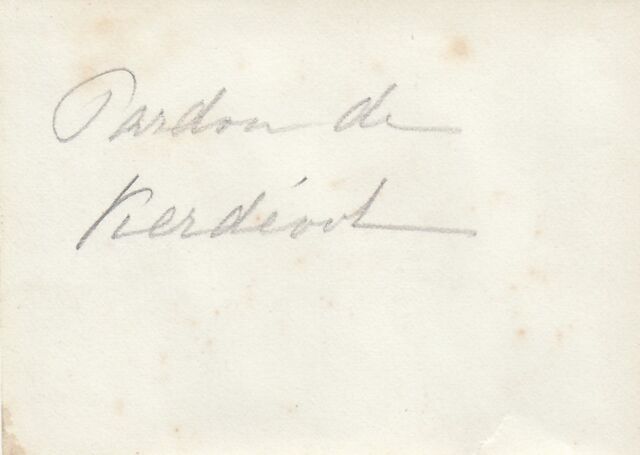 Pardon de
Kerdévot